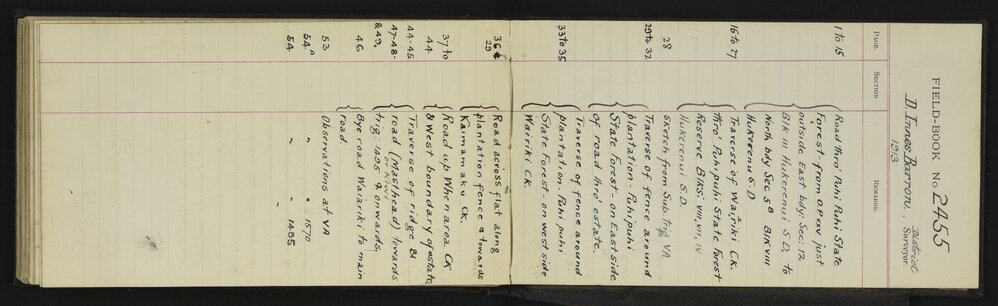 FIELD-BOOK No. 2455
D. Innes Barron, District Surveyor.
1913
PAGE. SECTION REMARKS.
1 to 15 Road thro' Puhi Puhi State
Forest - from O.P. XXV just
outside East bdy. Sec. 12
Blk III Hukerenui S.D. to
North bdy Sec 5B Blk VIII
Hukerenui S.D
16 to 27 Traverse of Wairiki Ck.
thro' Puhipuhi State Forest
Reserve BlKS. VIII, VII, IV
Hukerenui S.D.
28 Sketch from Sub trig VA.
29 to 32 Traverse of fence around
plantation - Puhipuhi
State Forest - on East side
of road thro' estate.
33 to 35 Traverse of fence around
plantation - Puhipuhi
State Forest - on west side
Wairiki Ck.
36 & 29 Road across flat along
plantation fence & towards
Kaimamaku Ck.
37 to 44 Road up Whenaroa Ck
& West boundary of estate
44-45 Traverse of ridge &
47-48- road (Masthead) towards
or Kiwi
& 49, trig 1495 & onwards.
46 Bye road Waiariki to main
road.
53 Observations at VA
54A " " 1570
54 " " 1495